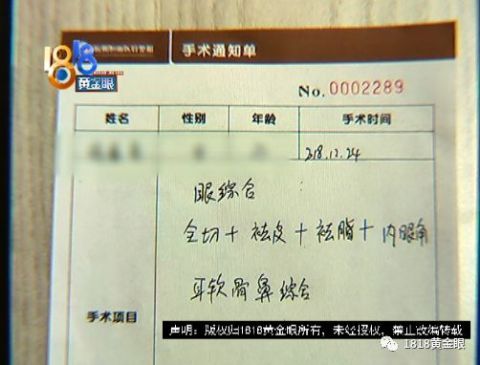 1818
黄金眼
手术通知单
No. 0002289
姓名 性别 年龄 手术时间
2018.12.24
眼综合:
全切+祛皮+祛脂+内眼角
耳软骨鼻综合
手术项目
声明:版权归1818黄金眼所有,未经授权,禁止改编转载
1818黄金眼